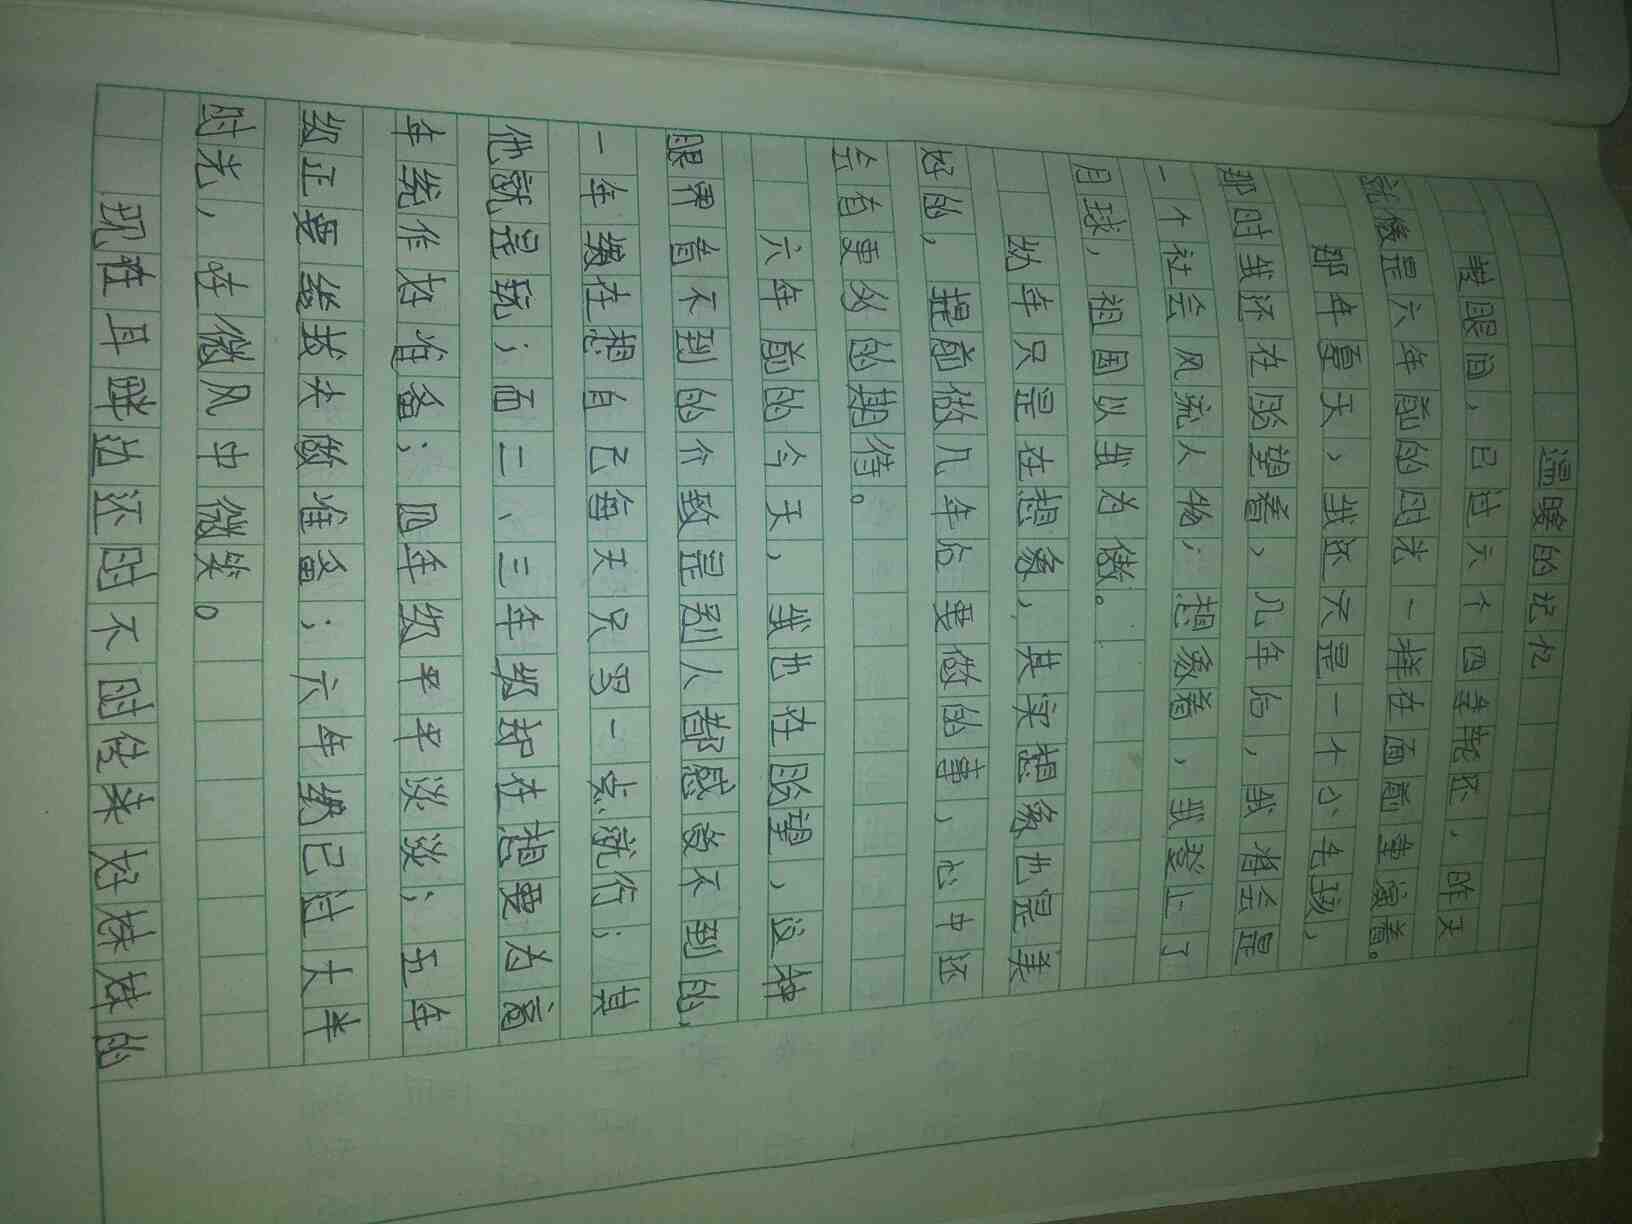 温暖的记忆
转眼间，已过六个四季轮还，昨天
就像是六年前的时光一样在面前重演着。
那年夏天，我还只是一个小毛孩，
那时我还在盼望着，几年后，我将会是
一个社会风流人物；想象着，我登上了
月球，祖国以我为傲。
幼年只是在想象，其实想象也是美
好的，提前做几年后要做的事，心中还
会有更多的期待。
六年前的今天，我也在盼望，这种
眼界看不到的介致是别人都感觉不到的，
一年级在想自己每天只写一点就行；其
他就是玩；而二、三年级却在想要为高
年级作好准备；四年级平平淡淡；五年
级正要给拔尖做准备；六年级已过大半
时光，在微风中微笑。
现在耳畔边还时不时传来好妹妹的